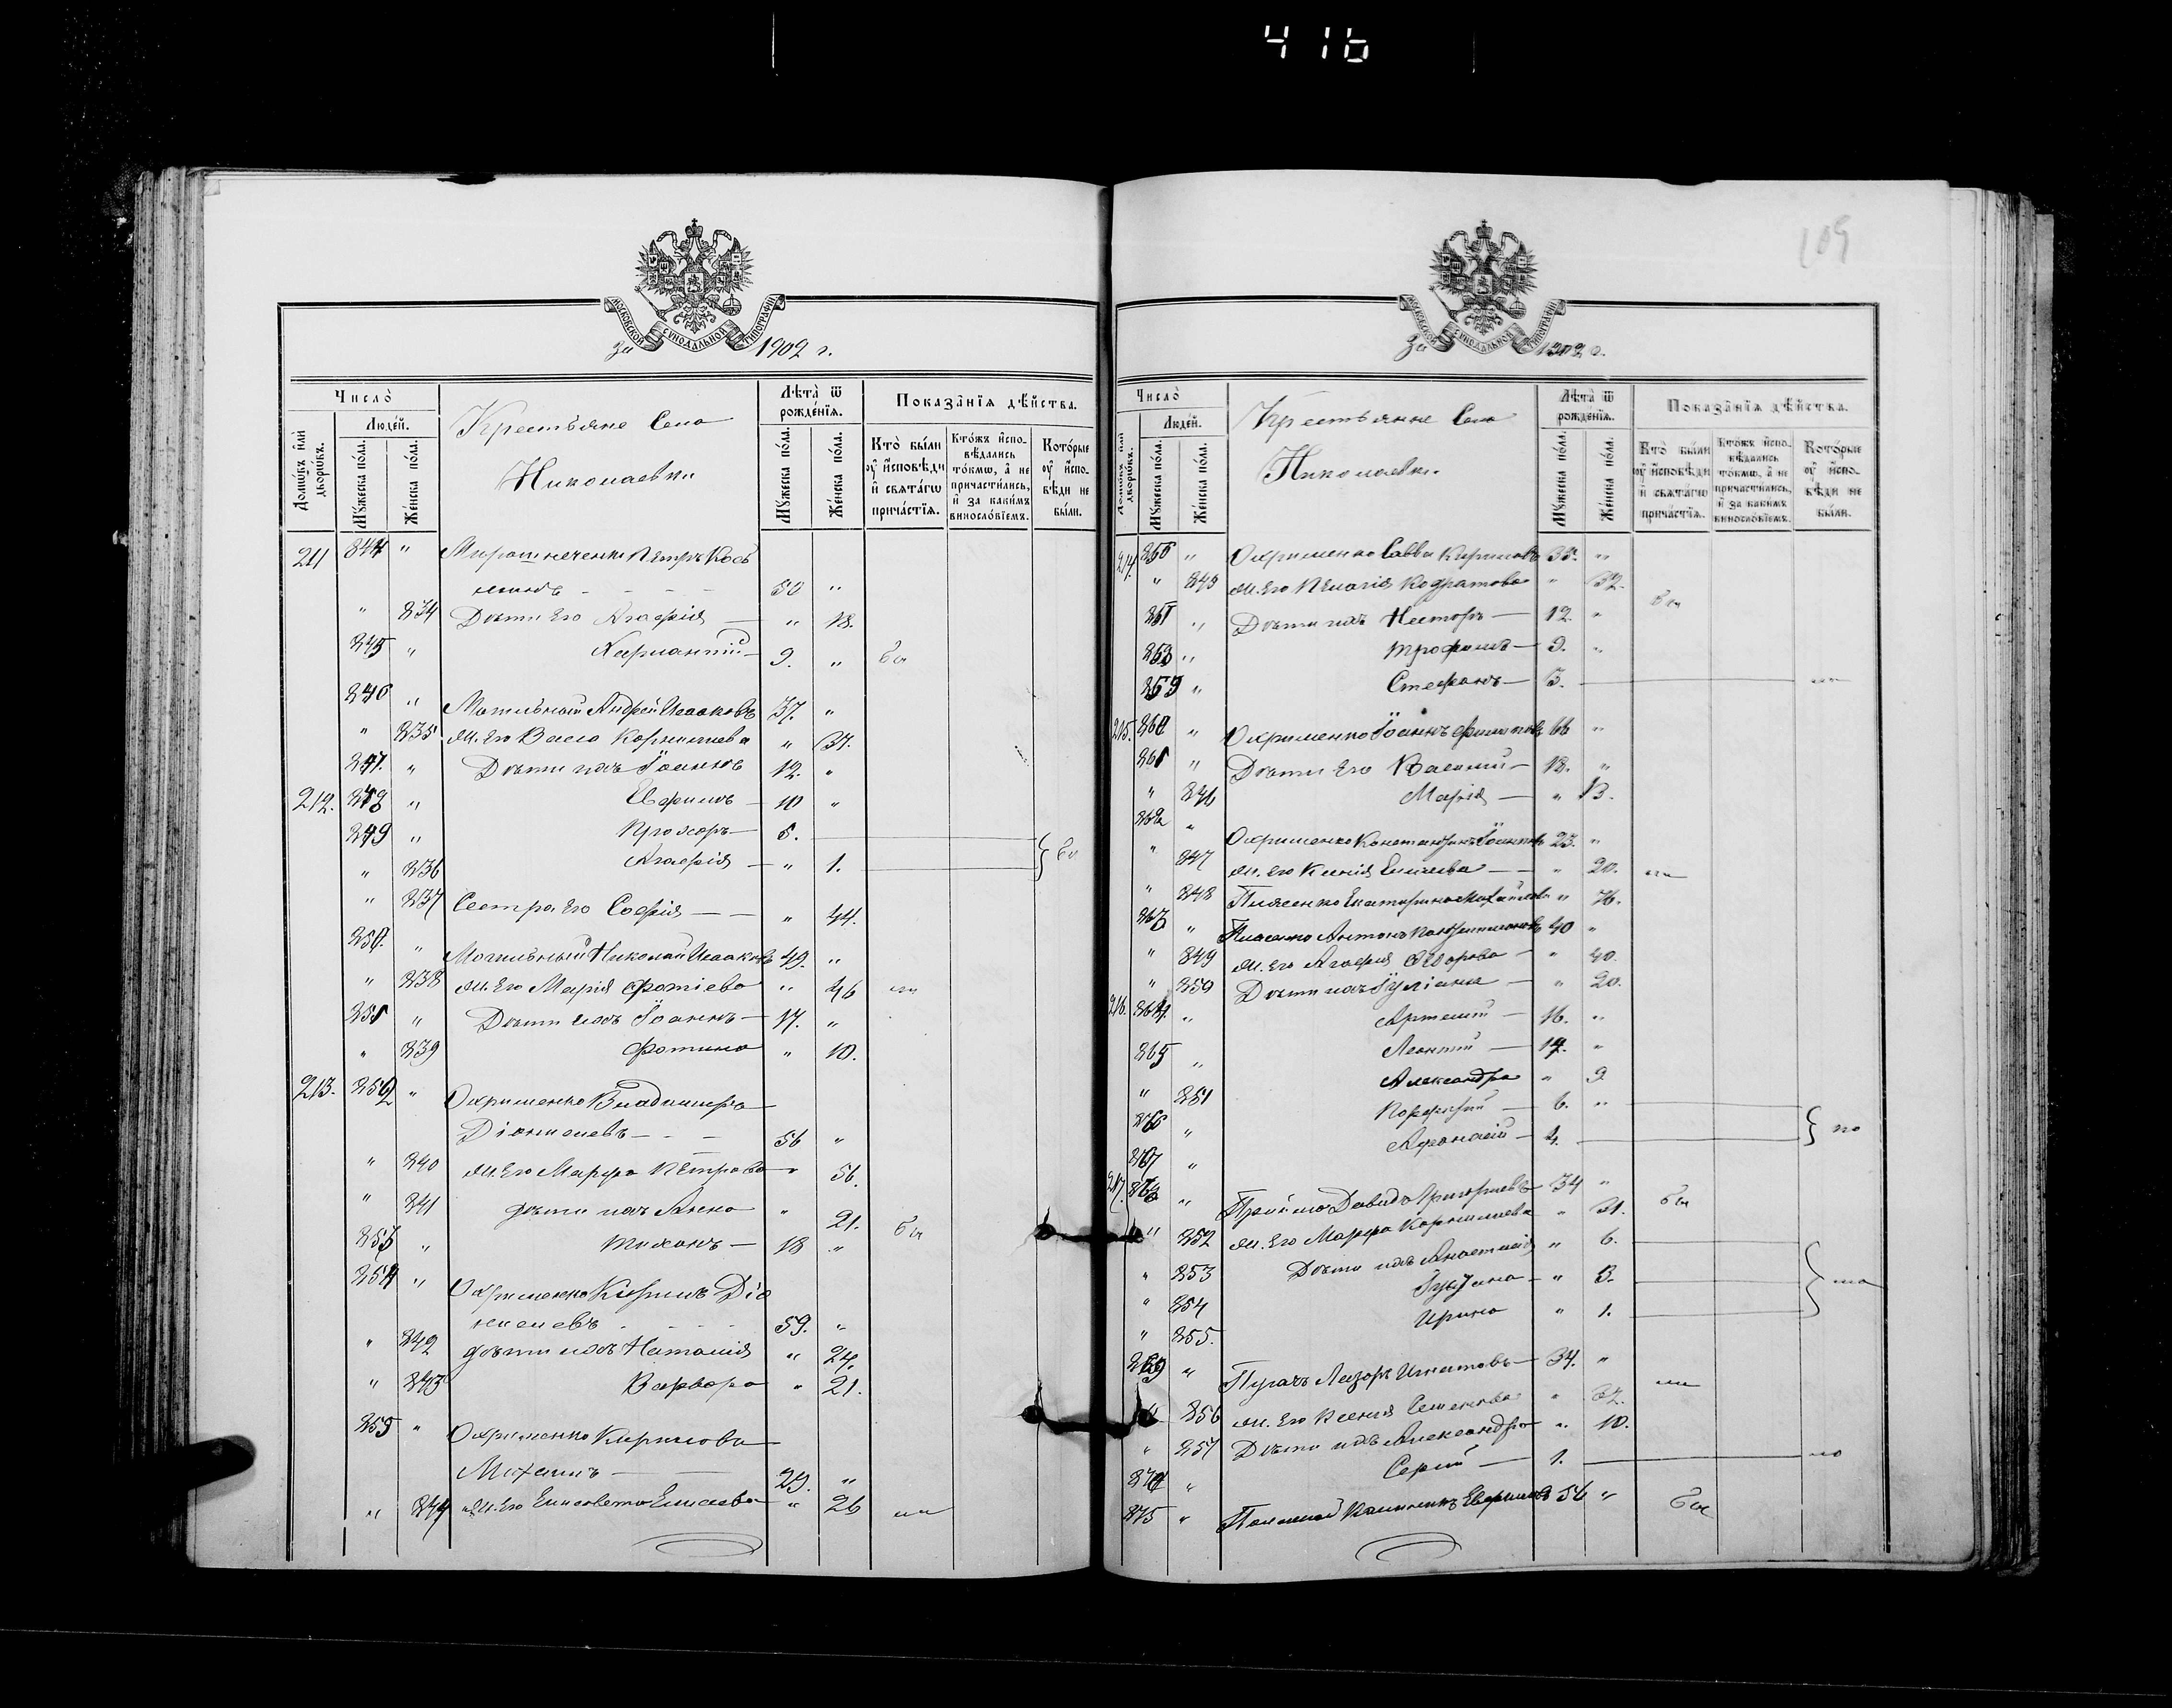 416
109
МОСКОВСКОЙ СѴНОДАЛЬНОЙ ТИПОГРАФІИ
За 1902 г.
Число̀
Лѣта̀ ѿ рожде́нїѧ.
Показа̂нїѧ дѣ́йства.
Домѡ́въ и҆лѝ дворѡ́въ.
Люде́й.
Мꙋ́жеска по́ла.
Же́нска по́ла.
Крестьяне Села
Николаевки
Мꙋ́жеска по́ла.
Же́нска по́ла.
Кто̀ бы́ли ᲂу҆ и҆́сповѣди и҆ свѧта́гѡ прича́стїѧ.
Кто́жъ и҆спо-вѣ́дались то́кмѡ, а҆ не причасти́лись, и҆ за каки́мъ винносло́вїемъ.
Кото́рые ᲂу҆ и҆́спо-вѣди не бы́ли.
211 844 " Мирошнеченко Петръ Кось
мичъ - - - 50 "
" 834 Дѣти Его Агафія — " 18.
845 " Лаврентій — 9. " бы
846 " Могильный Андрей Исааковъ 37. "
" 835 ж. Его Васса Корнилиева " 37.
847. " Дѣти ихъ Іоаннъ 12. "
212. 848 " Евфимъ — 10 "
849 " Прохоръ — 5.
" 836 Агафія — " 1.
" 837 Сестра Его Софія — — " 44.
850. " Могильный Николай Исааковъ 49. "
" 838 ж. Его Марія Фотіева " 46 ли
851 " Дѣти ихъ Іоаннъ — 17. "
" 839 Фотина " 10.
213. 852 " Охрименко Владимиръ
Діонисіевъ — - — 56 "
" 840 ж. Его Марфа Петрова " 56.
" 841 дѣти ихъ Анна " 21. бы
853 " Тихонъ — 18 "
854 " Охрименко Кирилъ Діо
нисіевъ - - - 59. "
" 842 дѣти ихъ Наталія " 24.
" 843 Варвара " 21.
855 " Охрименко Кирилова
Михаилъ — 29. "
" 844 ж. Его Елисавета Елисеева " 26 ли
За 1902 г.
Число̀
Лѣта̀ ѿ рожде́нїѧ.
Показа̂нїѧ дѣ́йства.
Домѡ́въ и҆лѝ дворѡ́въ.
Люде́й.
Мꙋ́жеска по́ла.
Же́нска по́ла.
Крестьяне Села
Николаевки.
Мꙋ́жеска по́ла.
Же́нска по́ла.
Кто̀ бы́ли ᲂу҆ и҆́сповѣди и҆ свѧта́гѡ прича́стїѧ.
Кто́жъ и҆спо-вѣ́дались то́кмѡ, а҆ не причасти́лись, и҆ за каки́мъ винносло́вїемъ.
Кото́рые ᲂу҆ и҆́спо-вѣди не бы́ли.
214. 856 " Охрименко Савва Кириловъ 35. "
" 845 ж. Его Пелагія Кодратова " 32. бы
857 " Дѣти ихъ Несторъ — 12 "
858 " Трофимъ — 9. "
859 " Стефанъ — 5. ли
215. 860 " Охрименко Іоаннъ Филиповъ 66 "
861 " Дѣти Его Василій — 18. "
" 846 Марія — " 13.
862 " Охрименко Константинъ Іоанновъ 23. "
" 847 ж. Его Ксенія Елисеева — — " 20. ли
" 848 Екатерина Михайлова " 76.
863 " Антонъ 40 "
" 849 ж. Его Агафія Ѳедорова — " 40.
" 850 Дѣти ихъ Іуліанна — " 20.
216. 864. " Артемій — 16. "
865 " Леонтій — 14. "
" 851 Александра " 9
866 " Порфирій — 6. "
867 " Афанасій — 4.
217. 868 " Давидъ Григориевъ 34 " бы
" 852 ж. Его Марфа Корнилиева " 31.
" 853 Дѣти ихъ Анастасія " 6.
" 854 — " 3.
" 855. Ирина " 1.
869 " Пугачъ Лазарь Игнатовъ — 34. "
" 856 ж. Его Ксенія Семенова " 32. ли
" 857 Дѣти ихъ Александра " 10.
874 " Сергій — 1.
875 " Калиникъ Евфимовъ 56 " бы